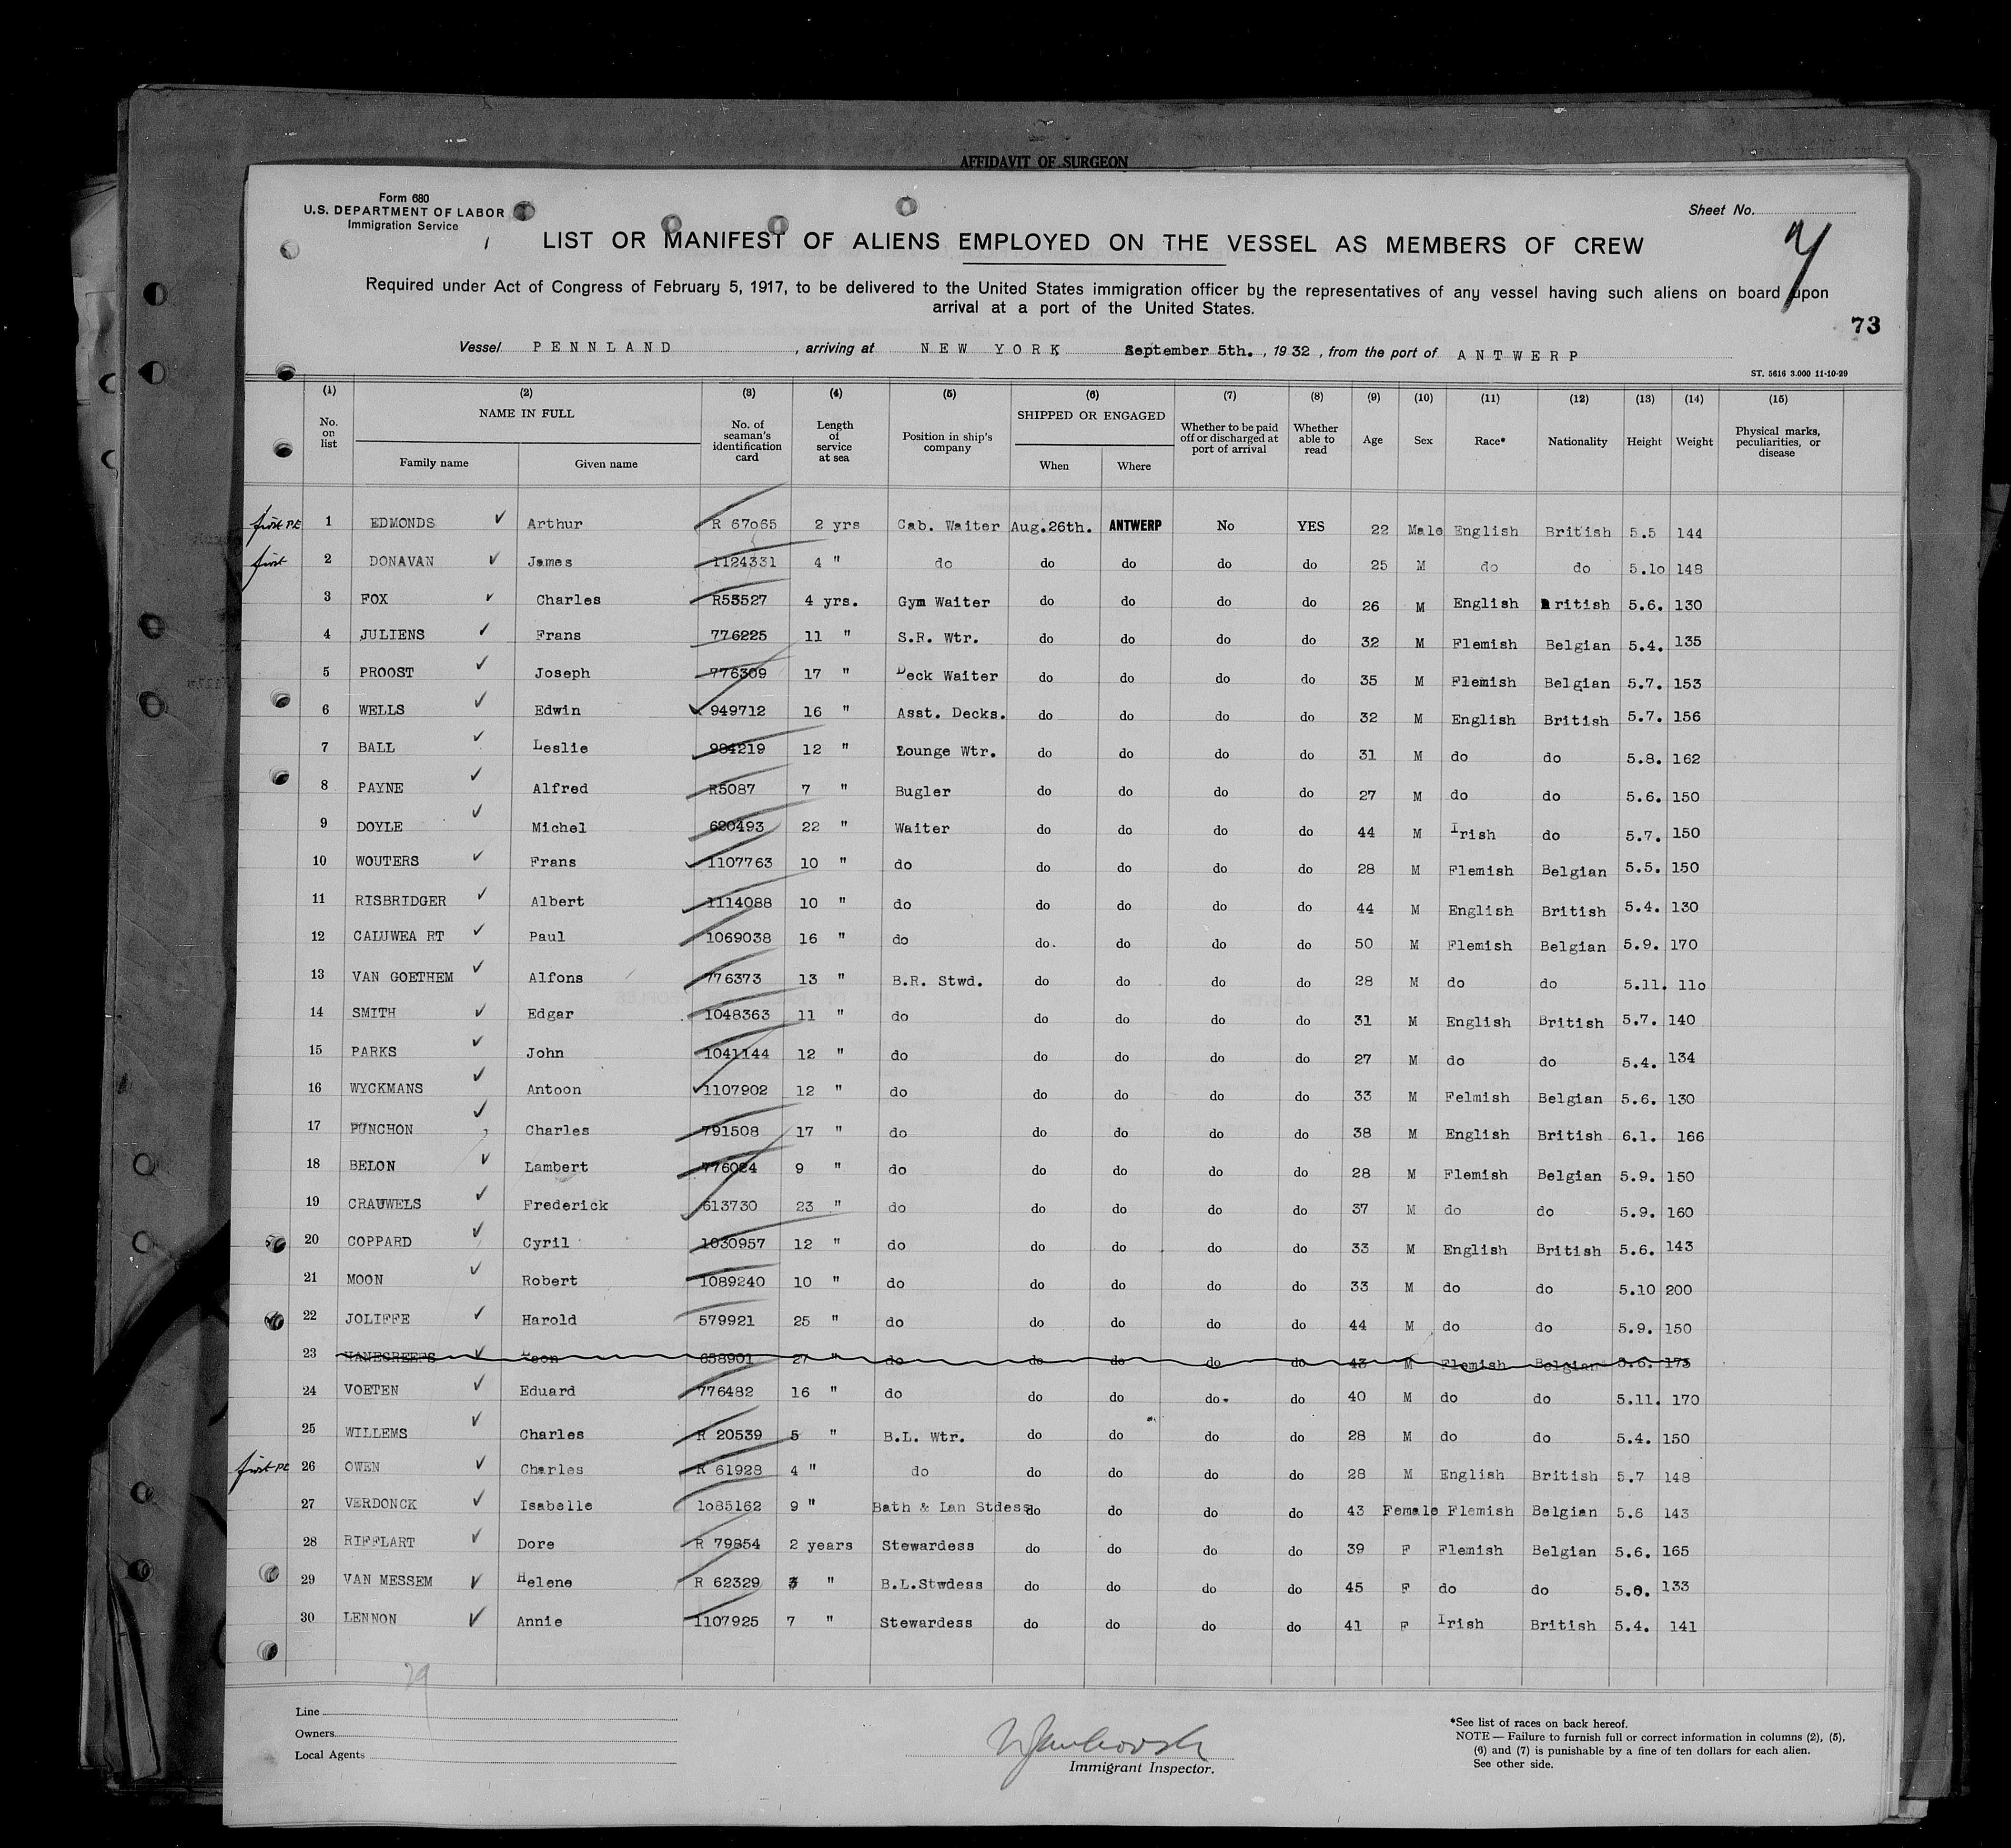 AFFIDAVIT OF SURGEON
Form 680
U.S. DEPARTMENT OF LABOR
Immigration Service
Sheet No.
LIST OR MANIFEST OF ALIENS EMPLOYED ON THE VESSEL AS MEMBERS OF CREW
Required under Act of Congress of February 5, 1917, to be delivered to the United States immigration officer by the representatives of any vessel having such aliens on board upon
arrival at a port of the United States.
73
Vessel PENNLAND, arriving at NEW YORK September 5th., 1932, from the port of ANTWERP
ST. 5616 3.000 11-10-29
(1) (2) (3) (4) (5) (6) (7) (8) (9) (10) (11) (12) (13) (14) (15)
No. on list NAME IN FULL Family name Given name No. of seaman's identification card Length of service at sea Position in ship's company SHIPPED OR ENGAGED When Where Whether to be paid off or discharged at port of arrival Whether able to read Age Sex Race* Nationality Height Weight Physical marks, peculiarities, or disease
first 1 EDMONDS Arthur R 67065 2 yrs Cab. Waiter Aug.26th. ANTWERP No YES 22 Male English British 5.5 144
first 2 DONAVAN James 1124331 4 " do do do do do 25 M do do 5.10 148
3 FOX Charles R53527 4 yrs. Gym Waiter do do do do 26 M English British 5.6. 130
4 JULIENS Frans 776225 11 " S.R. Wtr. do do do do 32 M Flemish Belgian 5.4. 135
5 PROOST Joseph 776309 17 " Deck Waiter do do do do 35 M Flemish Belgian 5.7. 153
6 WELLS Edwin 949712 16 " Asst. Decks. do do do do 32 M English British 5.7. 156
7 BALL Leslie 984219 12 " Lounge Wtr. do do do do 31 M do do 5.8. 162
8 PAYNE Alfred R5087 7 " Bugler do do do do 27 M do do 5.6. 150
9 DOYLE Michel 620493 22 " Waiter do do do do 44 M Irish do 5.7. 150
10 WOUTERS Frans 1107763 10 " do do do do do 28 M Flemish Belgian 5.5. 150
11 RISBRIDGER Albert 1114088 10 " do do do do do 44 M English British 5.4. 130
12 CALUWEA RT Paul 1069038 16 " do do. do do do 50 M Flemish Belgian 5.9. 170
13 VAN GOETHEM Alfons 776373 13 " B.R. Stwd. do do do do 28 M do do 5.11. 110
14 SMITH Edgar 1048363 11 " do do do do do 31 M English British 5.7. 140
15 PARKS John 1041144 12 " do do do do do 27 M do do 5.4. 134
16 WYCKMANS Antoon 1107902 12 " do do do do do 33 M Felmish Belgian 5.6. 130
17 PUNCHON Charles 791508 17 " do do do do do 38 M English British 6.1. 166
18 BELON Lambert 776024 9 " do do do do do 28 M Flemish Belgian 5.9. 150
19 CRAUWELS Frederick 613730 23 " do do do do do 37 M do do 5.9. 160
20 COPPARD Cyril 1030957 12 " do do do do do 33 M English British 5.6. 143
21 MOON Robert 1089240 10 " do do do do do 33 M do do 5.10 200
22 JOLIFFE Harold 579921 25 " do do do do do 44 M do do 5.9. 150
23 HANEGREEFS 658901 27 " do do do do do 43 M Flemish Belgian 5.6. 173
24 VOETEN Eduard 776482 16 " do do do do. do 40 M do do 5.11. 170
25 WILLEMS Charles R 20539 5 " B.L. Wtr. do do do do 28 M do do 5.4. 150
first 26 OWEN Charles R 61928 4 " do do do do do 28 M English British 5.7 148
27 VERDONCK Isabelle 1085162 9 " Bath & Lan Stdess do do do do 43 Female Flemish Belgian 5.6 143
28 RIFFLART Dore R 79854 2 years Stewardess do do do do 39 F Flemish Belgian 5.6. 165
29 VAN MESSEM Helene R 62329 " B.L.Stwdess do do do do 45 F do do 133
30 LENNON Annie 1107925 7 " Stewardess do do do do 41 F Irish British 5.4. 141
29
Line
Owners
Local Agents
Immigrant Inspector.
*See list of races on back hereof.
NOTE — Failure to furnish full or correct information in columns (2), (5),
(6) and (7) is punishable by a fine of ten dollars for each alien.
See other side.